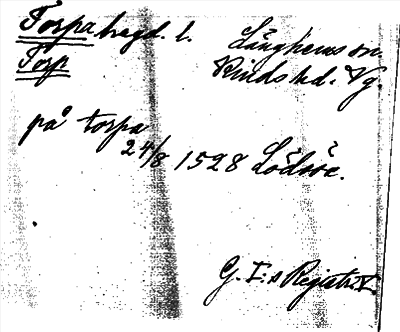 Torpa, hagd. l. Länghems sn.
Torp Kinds hd. Vg.
på torpa
24/8 1528 Lödöse.
G. I:s Registr. V